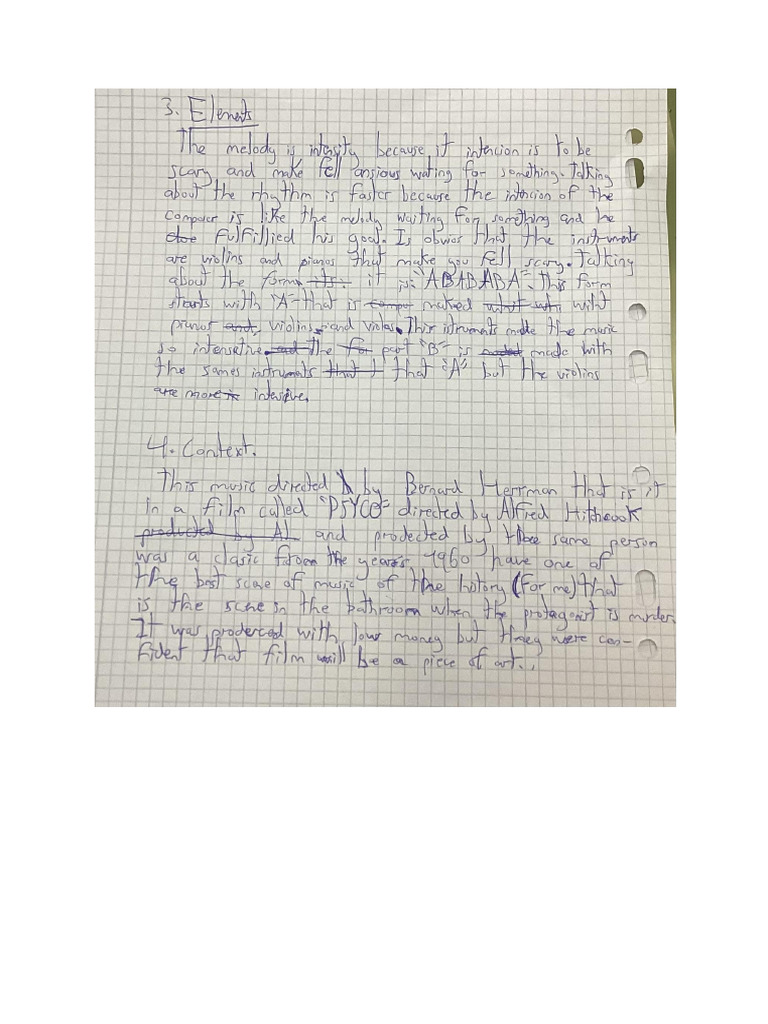 3. Elements
The melody is intensity because it intencion is to be
scary and make fell ansious wating for something. Talking
about the rhythm is faster because the intencion of the
composer is like the melody waiting for something and he
fulfillied his goal. Is obvios that the instruments
are violins and pianos that make you fell scary. Talking
about the form it is: "ABABABA". This form
starts with "A" that is maked whit
pianos violins and violas. This istruments made the music
so intensetive the part "B" is made with
the sames instruments that "A" but the violins
are more intensive.
4. Context.
This music directed by Bernard Herrman that is it
in a film called "PSYCO" directed by Alfred Hitchcok
and prodected by the same person
was a clasic from the years 1960 have one of
the best scene of music of the history (for me) that
is the scene in the bathroom when the protagonist is murder.
It was proderced with low money but they were con-
fident that film will be a piece of art..